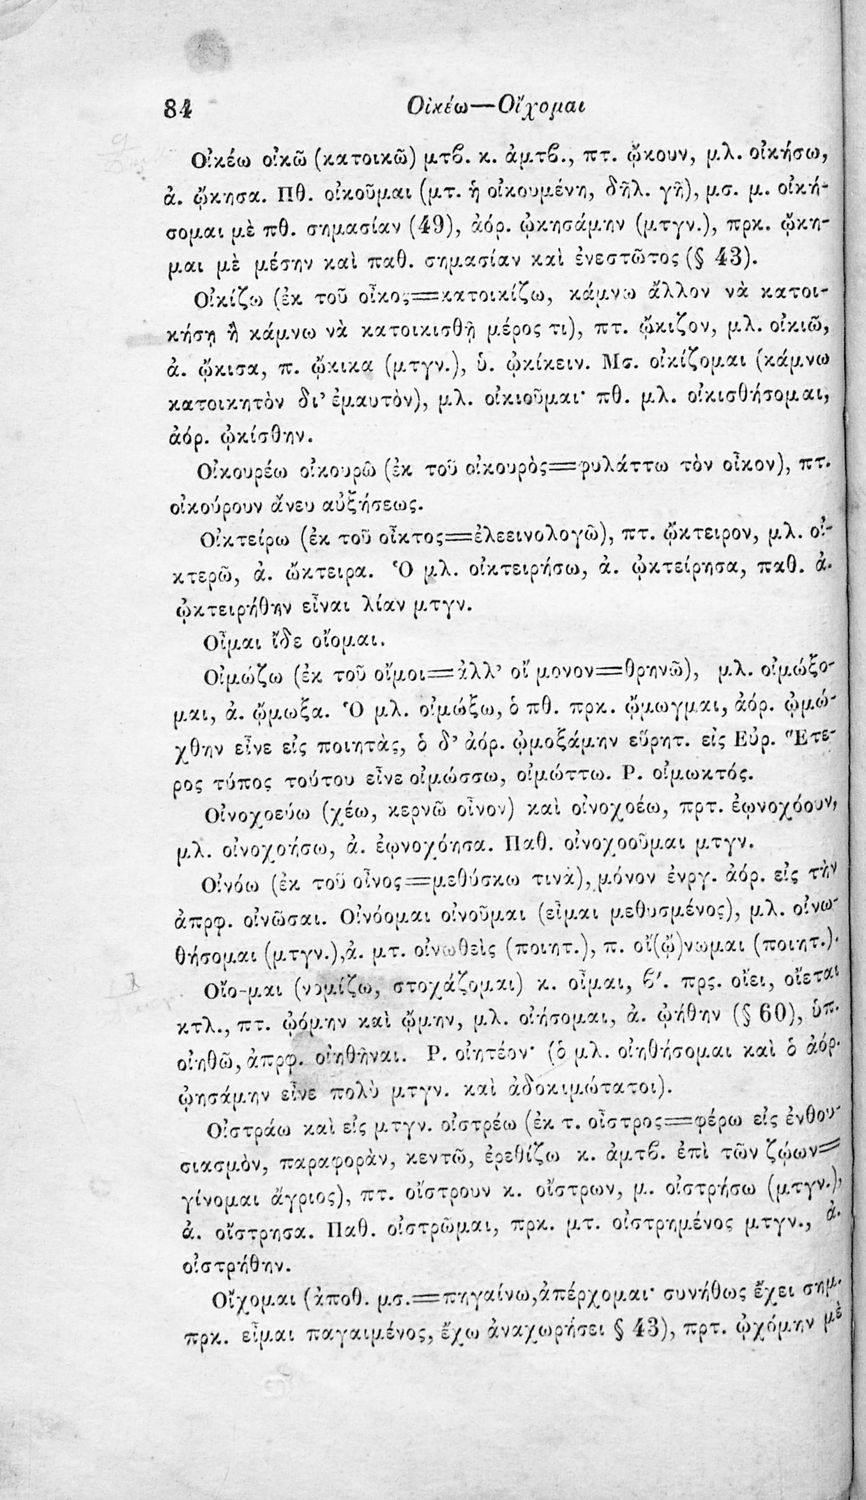 84 Οἰκέω—Οἴχομαι
Οἰκέω οἰκῶ (κατοικῶ) μτβ. κ. ἀμτβ., πτ. ᾤκουν, μλ. οἰκήσω,
ἀ. ᾤκησα. Πθ. οἰκοῦμαι (μτ. ἡ οἰκουμένη, δῆλ. γῆ), μσ. μ. οἰκή-
σομαι μὲ πθ. σημασίαν (49), ἀόρ. ᾠκησάμην (μτγν.), πρκ. ᾤκη-
μαι μὲ μέσην καὶ παθ. σημασίαν καὶ ἐνεστῶτος (§ 43).
Οἰκίζω (ἐκ τοῦ οἶκος=κατοικίζω, κάμνω ἄλλον νὰ κατοι-
κήσῃ ἢ κάμνω νὰ κατοικισθῇ μέρος τι), πτ. ᾤκιζον, μλ. οἰκιῶ,
ἀ. ᾤκισα, π. ᾤκικα (μτγν.), ὑ. ᾠκίκειν. Μσ. οἰκίζομαι (κάμνω
κατοικητὸν δι' ἐμαυτὸν), μλ. οἰκιοῦμαι· πθ. μλ. οἰκισθήσομαι,
ἀόρ. ᾠκίσθην.
Οἰκουρέω οἰκουρῶ (ἐκ τοῦ οἰκουρὸς=φυλάττω τὸν οἶκον), πτ.
οἰκούρουν ἄνευ αὐξήσεως.
Οἰκτείρω (ἐκ τοῦ οἶκτος=ἐλεεινολογῶ), πτ. ᾤκτειρον, μλ. οἰ-
κτερῶ, ἀ. ᾤκτειρα. Ὁ μλ. οἰκτειρήσω, ἀ. ᾠκτείρησα, παθ. ἀ.
ᾠκτειρήθην εἶναι λίαν μτγν.
Οἶμαι ἴδε οἴομαι.
Οἰμώζω (ἐκ τοῦ οἴμοι=ἀλλ' οἴ μονον=θρηνῶ), μλ. οἰμώξο-
μαι, ἀ. ᾤμωξα. Ὁ μλ. οἰμώξω, ὁ πθ. πρκ. ᾤμωγμαι, ἀόρ. ᾠμώ-
χθην εἶνε εἰς ποιητὰς, ὁ δ' ἀόρ. ᾠμοξάμην εὕρητ. εἰς Εὐρ. Ἕτε-
ρος τύπος τούτου εἶνε οἰμώσσω, οἰμώττω. Ρ. οἰμωκτός.
Οἰνοχοεύω (χέω, κερνῶ οἶνον) καὶ οἰνοχοέω, πρτ. ἐῳνοχόουν,
μλ. οἰνοχοήσω, ἀ. ἐῳνοχόησα. Παθ. οἰνοχοοῦμαι μτγν.
Οἰνόω (ἐκ τοῦ οἶνος=μεθύσκω τινὰ), μόνον ἐνργ. ἀόρ. εἰς τὴν
ἀπρφ. οἰνῶσαι. Οἰνόομαι οἰνοῦμαι (εἶμαι μεθυσμένος), μλ. οἰνω-
θήσομαι (μτγν.), ἀ. μτ. οἰνωθεὶς (ποιητ.), π. οἴ(ᾤ)νωμαι (ποιητ.).
Οἴο-μαι (νομίζω, στοχάζομαι) κ. οἶμαι, β'. πρς. οἴει, οἴεται
κτλ., πτ. ᾠόμην καὶ ᾤμην, μλ. οἰήσομαι, ἀ. ᾠήθην (§ 60), ὑπ.
οἰηθῶ, ἀπρφ. οἰηθῆναι. Ρ. οἰητέον· (ὁ μλ. οἰηθήσομαι καὶ ὁ ἀόρ.
ᾠησάμην εἶνε πολὺ μτγν. καὶ ἀδοκιμώτατοι).
Οἰστράω καὶ εἰς μτγν. οἰστρέω (ἐκ τ. οἶστρος=φέρω εἰς ἐνθου-
σιασμὸν, παραφορὰν, κεντῶ, ἐρεθίζω κ. ἀμτβ. ἐπὶ τῶν ζῴων=
γίνομαι ἄγριος), πτ. οἴστρουν κ. οἴστρων, μ. οἰστρήσω (μτγν.),
ἀ. οἴστρησα. Παθ. οἰστρῶμαι, πρκ. μτ. οἰστρημένος μτγν., ἀ.
οἰστρήθην.
Οἴχομαι (ἀποθ. μσ.=πηγαίνω, ἀπέρχομαι· συνήθως ἔχει σημ.
πρκ. εἶμαι παγαιμένος, ἔχω ἀναχωρήσει § 43), πρτ. ᾠχόμην μὲ